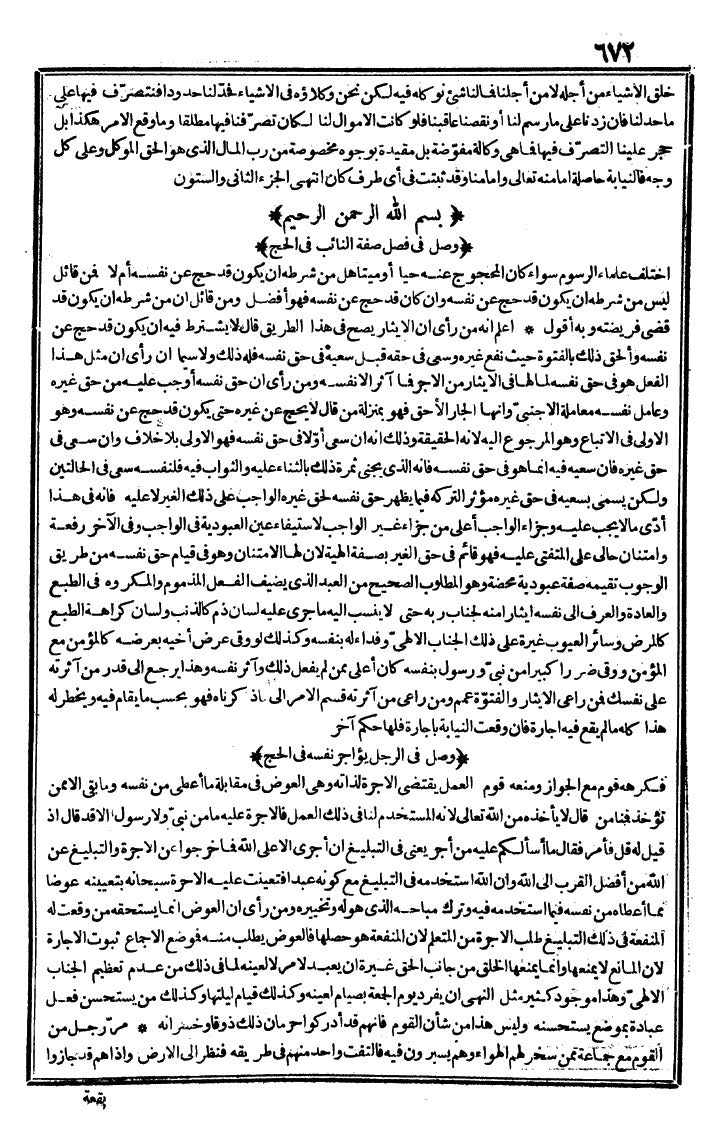 ٦٧٢
خلق الأشياء من أجله لا من أجلنا فالناشئ نوكله فيه لكن نحن وكلاؤه فى الاشياء فحدّ لنا حدودا فنتصرّف فيها على
ما حدّ لنا فان زدنا على ما رسم لنا أو نقصنا عاقبنا فلو كانت الاموال لنا لكان تصرّفنا فيها مطلقا وما وقع الامر هكذا بل
حجر علينا التصرّف فيها فما هى وكالة مفوّضة بل مقيدة بوجوه مخصوصة من رب المال الذى هو الحق الموكل وعلى كل
وجه فالنيابة حاصلة امامنه تعالى وامامنا وقد ثبتت فى أى طرف كان انتهى الجزء الثانى والستون
﴿ بسم الله الرحمن الرحيم ﴾
﴿ وصل فى فصل صفة النائب فى الحج ﴾
اختلف علماء الرسوم سواء كان المحجوج عنه حيا أوميتا هل من شرطه ان يكون قد حج عن نفسه أم لا فمن قائل
ليس من شرطه ان يكون قد حج عن نفسه وان كان قد حج عن نفسه فهو أفضل ومن قائل ان من شرطه ان يكون قد
قضى فريضته وبه أقول * اعلم انه من رأى ان الايثار يصح فى هذا الطريق قال لا يشترط فيه ان يكون قد حج عن
نفسه وألحق ذلك بالفتوة حيث نفع غيره وسعى فى حقه قبل سعيه فى حق نفسه فله ذلك ولا سيما ان رأى ان مثل هذا
الفعل هو فى حق نفسه لما لها فى الايثار من الاجر فما آثر الا نفسه ومن رأى ان حق نفسه أوجب عليه من حق غيره
وعامل نفسه معاملة الاجنبىّ وانها الجار الأحق فهو بمنزلة من قال لا يحج عن غيره حتى يكون قد حج عن نفسه وهو
الاولى فى الاتباع وهو المرجوع اليه لانه الحقيقة وذلك انه ان سعى أوّلا فى حق نفسه فهو الاولى بلا خلاف وان سعى فى
حق غيره فان سعيه فيه انما هو فى حق نفسه فانه الذى يجنى ثمرة ذلك بالثناء عليه والثواب فيه فلنفسه سعى فى الحالتين
ولكن يسمى بسعيه فى حق غيره مؤثر التركه فيما يظهر حق نفسه لحق غيره الواجب على ذلك الغير لا عليه فانه فى هذا
أدّى ما لا يجب عليه وجزاء الواجب أعلى من جزاء غير الواجب لاستيفاء عين العبودية فى الواجب وفى الآخر رفعة
وامتنان حالى على المتفتى عليه فهو قائم فى حق الغير بصفة الهية لان لها الامتنان وهو فى قيام حق نفسه من طريق
الوجوب تقيمه صفة عبودية محضة وهو المطلوب الصحيح من العبد الذى يضيف الفعل المذموم والمكروه فى الطبع
والعادة والعرف الى نفسه ايثارا منه لجناب ربه حتى لا ينسب اليه ما جرى عليه لسان ذم كالذنب ولسان كراهة الطبع
كالمرض وسائر العيوب غيرة على ذلك الجناب الالهىّ وفداء له بنفسه وكذلك لو وقى عرض أخيه بعرضه كالمؤمن مع
المؤمن ووقى ضررا كبيرا من نبىّ ورسول بنفسه كان أعلى ممن لم يفعل ذلك وآثر نفسه وهذا يرجع الى قدر من آثرته
على نفسك فمن راعى الايثار والفتوّة عمم ومن راعى من آثرته قسم الامر الى ماذكرناه فهو بحسب ما يقام فيه ويخطر له
هذا كله ما لم يقع فيه اجارة فان وقعت النيابة باجارة فلها حكم آخر
﴿ وصل فى الرجل يؤاجر نفسه فى الحج ﴾
فكرهه قوم مع الجواز ومنعه قوم العمل يقتضى الاجرة لذاته وهى العوض فى مقابلة ما أعطى من نفسه وما بقى الا ممن
تؤخذ فمنا من قال لا يأخذه من الله تعالى لانه المستخدم لنا فى ذلك العمل فالاجرة عليه ما من نبىّ ولا رسول الا قد قال اذ
قيل له قل فأمر فقال ما أسألكم عليه من أجر يعنى فى التبليغ ان أجرى الا على الله فما خرجوا عن الاجرة والتبليغ عن
الله من أفضل القرب الى الله وان الله استخدمه فى التبليغ مع كونه عبدا فتعينت عليه الاجرة سبحانه بتعيينه عوضا
مما أعطاه من نفسه فيما استخدمه فيه وترك مباحه الذى هو له وتخييره ومن رأى ان العوض انما يستحقه من وقعت له
المنفعة فى ذلك التبليغ طلب الاجرة من المتعلم لان المنفعة هو حصلها فالعوض يطلب منه فوضع الاجماع ثبوت الاجارة
لان المانع لا يمنعها وانما يمنعها الخلق من جانب الحق غيرة ان يعبد لامر لا لعينه لما فى ذلك من عدم تعظيم الجناب
الالهىّ وهذا موجود كثير مثل النهى ان يفرد يوم الجمعة بصيام لعينه وكذلك قيام ليلتها وكذلك من يستحسن فعل
عبادة بموضع يستحسنه وليس هذا من شأن القوم فانهم قد أدركوا حرمان ذلك ذوقا وخسرانه * مرّ رجل من
القوم مع جماعة ممن سخر لهم الهواء وهم يسيرون فيه فالتفت واحد منهم فى طريقه فنظر الى الارض واذا هم قد جازوا
بقعة